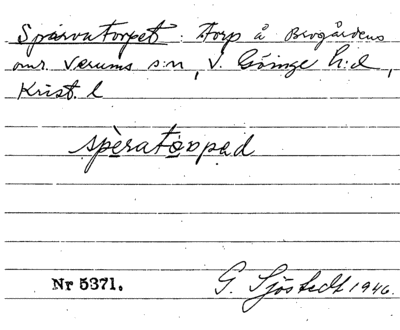 Sparvatorpet : Torp å Brogårdens
omr. Verums s:n, V. Göinge h:d,
Krist. l
spèratòrpad
Nr 5371. G. Sjöstedt 1946.